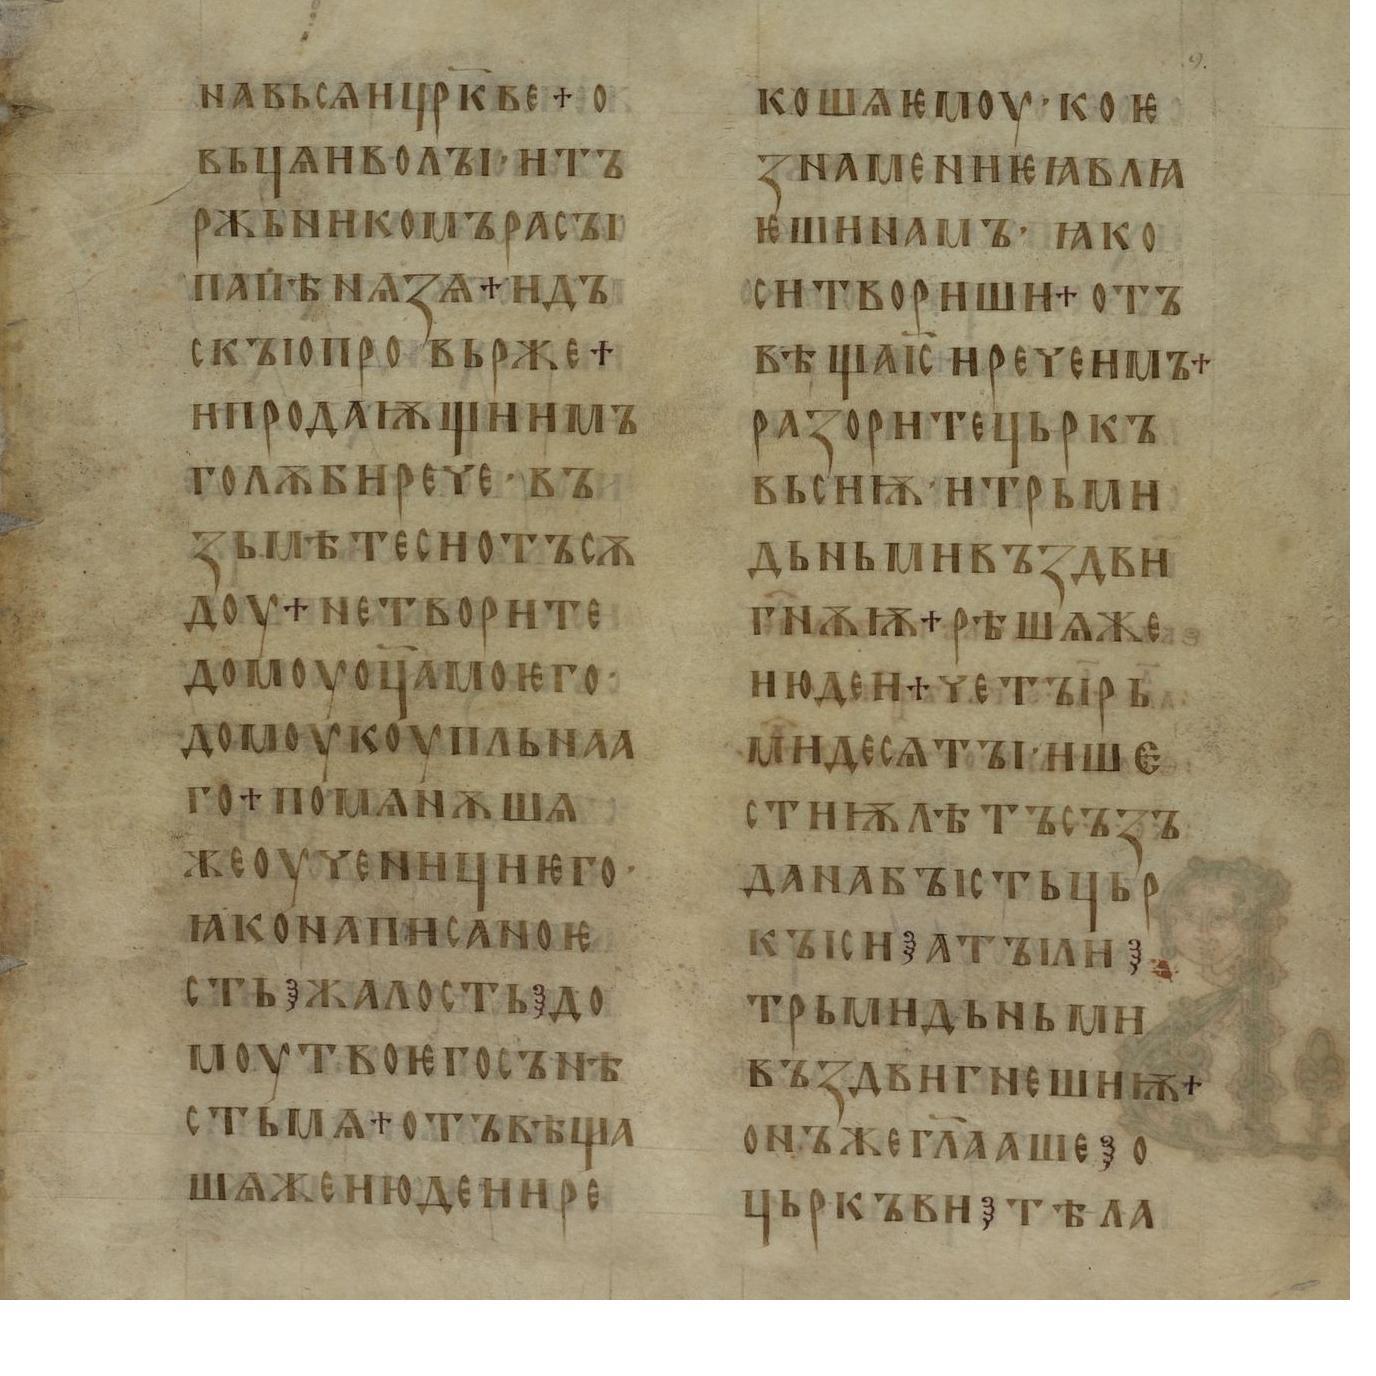 навьсѧицр҃кве+о
вьцѧиволꙑ·итъ
ржьникомърасꙑ
папѣнѧзѧ+идъ
скꙑопро вьрже+
ипродаѭщиимъ
голѫбирече·въ
зьмѣтесиотъсѫ
доу+нетворите
домоуоц҃амоѥго·
домоукоупльнаа
го+помѧнѫшѧ
жеоученициѥго·
ꙗконаписаноѥ
сть⸾жалость⸾до
моутвоѥгосънѣ
стьмѧ+отъвѣща
шѧжеиюдеиире
кошѧѥмоу·коѥ
знамениѥꙗвлꙗ
ѥшинамъ· ꙗко
ситвориши+отъ
вѣщаіс҃ иречеимъ+
разоритецьркъ
вьсиѭ·итрьми
дьньмивъздви
гн҄ѫѭ+рѣшѧже
июдеи+четꙑрь
м҄идесѧтꙑ·ише
стиѭлѣтъсъзъ
данабꙑстьцьр
кꙑси⸾атꙑли⸾
трьмидьньми
въздвигнешиѭ+
онъжегл҃ааше⸾о
цьркъви⸾тѣла